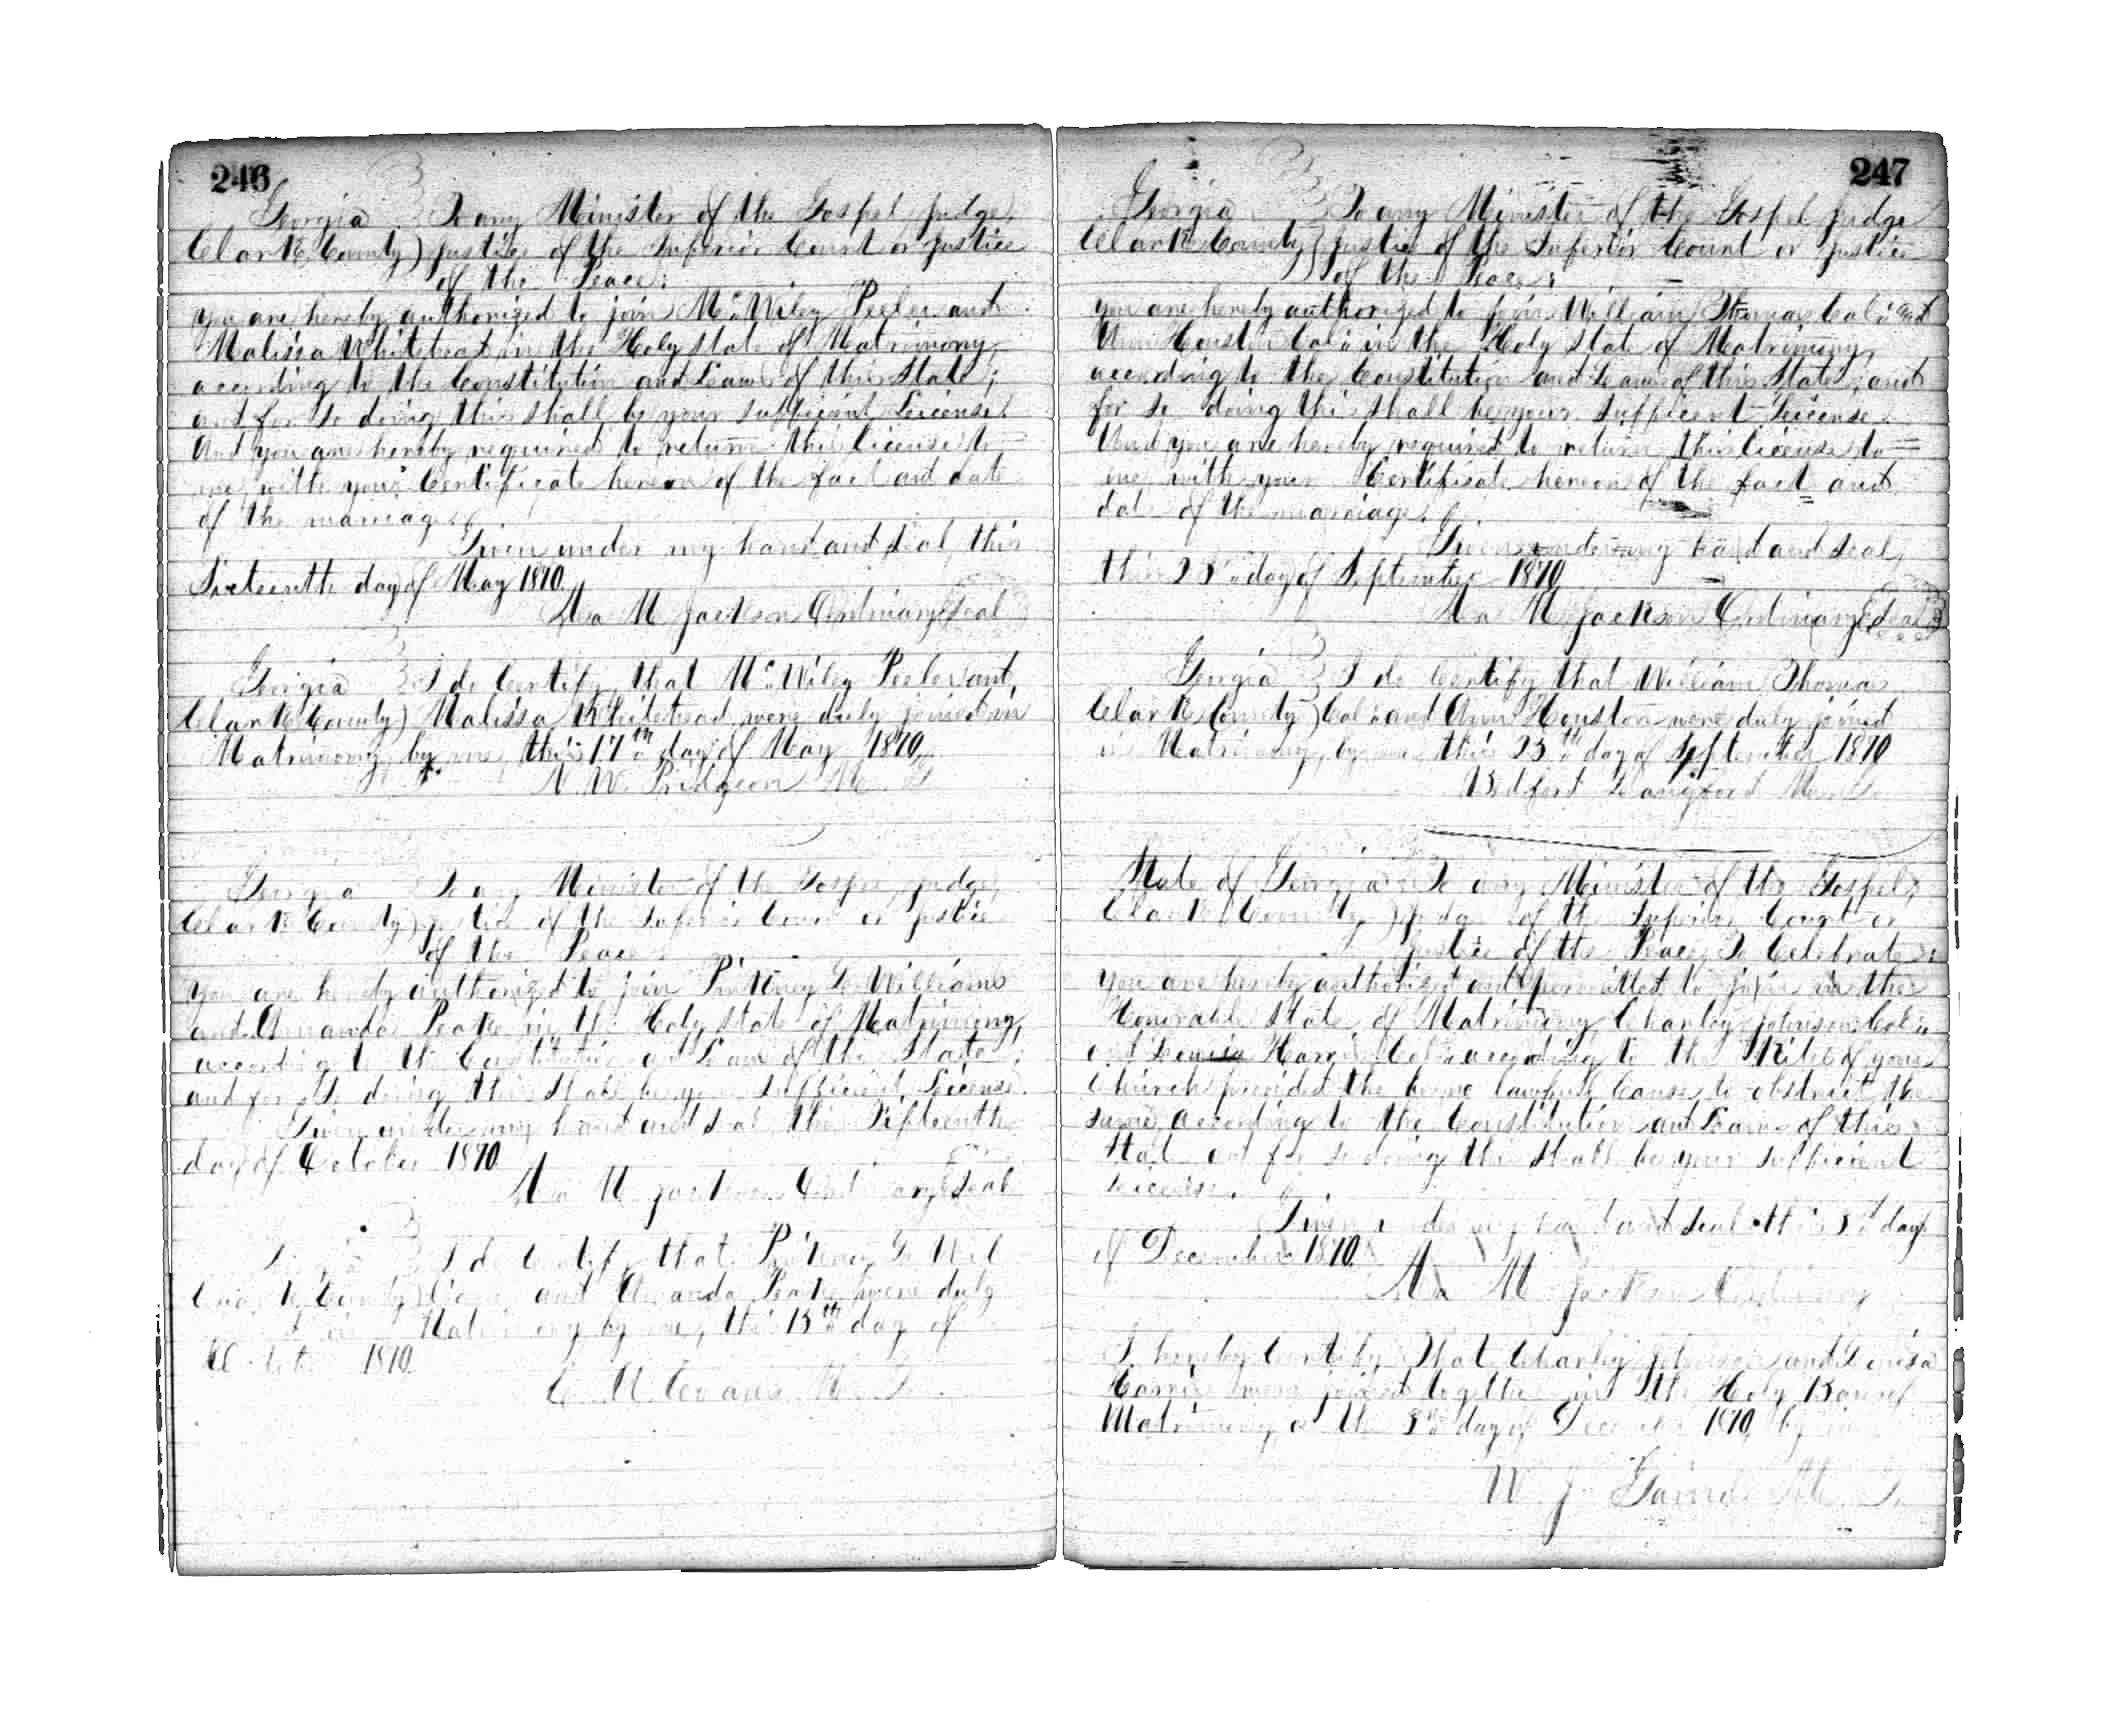 246
Georgia } To any Minister of the Gospel, judge,
Clark County } justice of the Superior Court or justice
of the Peace:
you are hereby authorized to join Mr. Wiley Peeler and
Malissa Whitehead in the Holy state of Matrimony,
according to the Constitution and Laws of this State;
and for so doing this shall be your sufficient License.
And you are hereby required to return this license to
me, with your Certificate hereon of the fact and date
of the marriage.
Given under my hand and seal this
Sixteenth day of May 1870.
Asa M Jackson Ordinary Seal
Georgia } I do Certify that Mr. Wiley Peeler and
Clark County } Malissa Whitehead were duly joined in
Matrimony by me this 17th day of May 1870.
N. W. Pridgeon M. G
Georgia } To any Minister of the Gospel, judge,
Clark County } justice of the Superior Court or justice
of the Peace
you are hereby authorized to join Pinkney G Williams
and Amanda Peake in the Holy state of Matrimony,
according to the Constitution and Laws of this State;
and for so doing this shall be your sufficient License.
Given under my hand and seal this Fifteenth
day of October 1870
Asa M Jackson Ordinary Seal
I do Certify that Pinkney G Wil
Clark County } liams and Amanda Peake were duly
Matrimony by me, this 15th day of
1870.
C M M. G.
247
Georgia } To any Minister of the Gospel judge
Clark County } justice of the Superior Court or justice
of the Peace:
you are hereby authorized to join William Thomas Col'd and
Ann Houston Col'd in the Holy state of Matrimony,
according to the Constitution and Laws of this State, and
for so doing this shall be your sufficient License.
And you are hereby required to return this license to
me with your Certificate hereon of the fact and
date of the marriage.
Given under my hand and seal,
this day of September 1870
Asa M Jackson Ordinary Seal
Georgia } I do Certify that William Thomas
Clark County } Col'd and Ann Houston were duly joined
in Matrimony, by me this 25th day of September 1870
Bedford Langford M. G.
State of Georgia } To any Minister of the Gospel,
Clark County } judge of the Superior Court or
justice of the Peace, To Celebrate:
you are hereby authorized and permitted to join in the
Honorable State of Matrimony Charley Johnson Col'd
and Harris Col'd according to the Rites of your
Church provided there be no lawful Cause to obstruct the
same, according to the Constitution and Laws of this
State and for so doing this shall be your sufficient
License.
Given under my hand and seal this day
of December 1870.
Asa M Jackson Ordinary
I hereby Certify That Charley Johnson and Louisa
Harris were joined together in the Holy Banns of
Matrimony on the day of December 1870, by me
W. J. M. G.